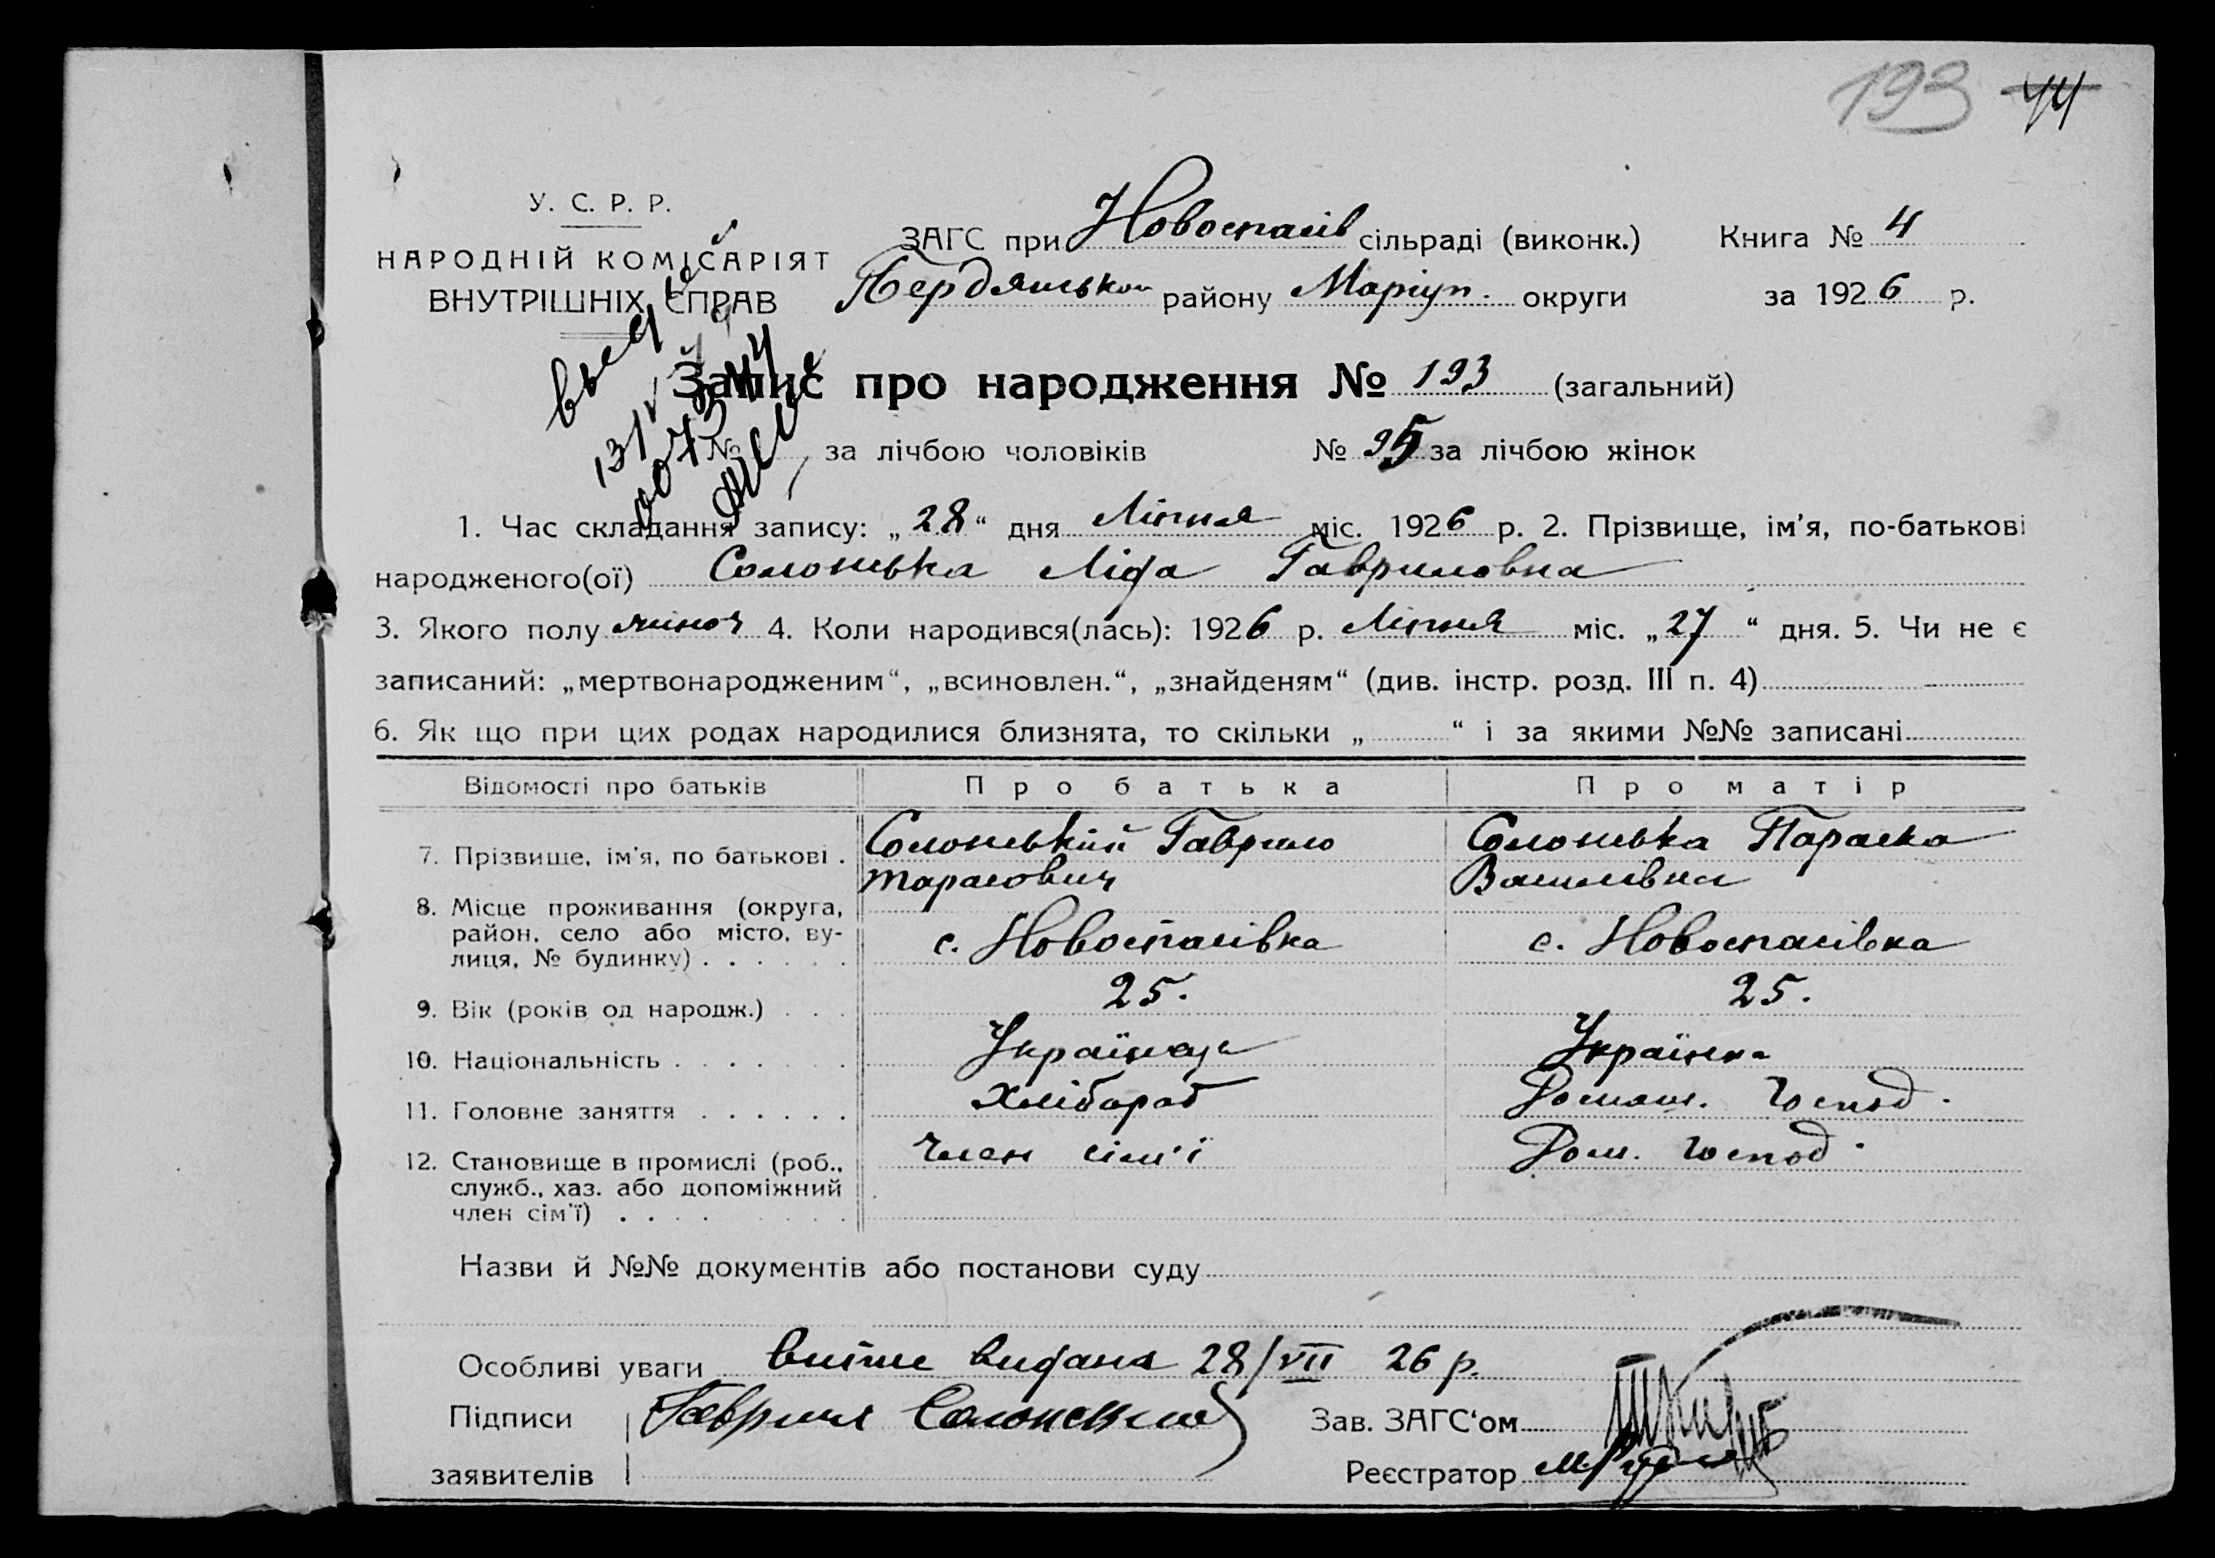 193 44
У. С. Р. Р.
НАРОДНІЙ КОМІСАРІЯТ
ВНУТРІШНІХ СПРАВ
ЗАГС при Новоспасів сільраді (виконк.) Книга № 4
Бердянськом району Маріуп. округи за 1926 р.
Запис про народження № 193 (загальний)
№ за лічбою чоловіків № 95 за лічбою жінок
1. Час складання запису: „28“ дня Липня міс. 1926 р. 2. Прізвище, ім'я, по-батькові
народженого(ої) Солонська Ліда Гавриловна
3. Якого полу жіноч 4. Коли народився(лась): 1926 р. Липня міс. „27“ дня. 5. Чи не є
записаний: „мертвонародженим“, „всиновлен.“, „знайденям“ (див. інстр. розд. III п. 4)
6. Як що при цих родах народилися близнята, то скільки „ “ і за якими №№ записані
Відомості про батьків Про батька Про матір
7. Прізвище, ім'я, по батькові . Солонський Гаврило Солонська Параска
Тарасович Василівна
8. Місце проживання (округа,
район, село або місто, ву-
лиця, № будинку) . . . . . . с. Новоспасівка с. Новоспасівка
9. Вік (років од народж.) . . . 25. 25.
10. Національність . . . . . . . Українець Українка
11. Головне заняття . . . . . . Хлібороб Домаш. Господ.
12. Становище в промислі (роб.,
служб., хаз. або допоміжний
член сім'ї) . . . . Член сім'ї Дом. господ.
Назви й №№ документів або постанови суду
Особливі уваги видана 28/VII 26 р.
Підписи Солонский Зав. ЗАГС'ом
заявителів Реєстратор